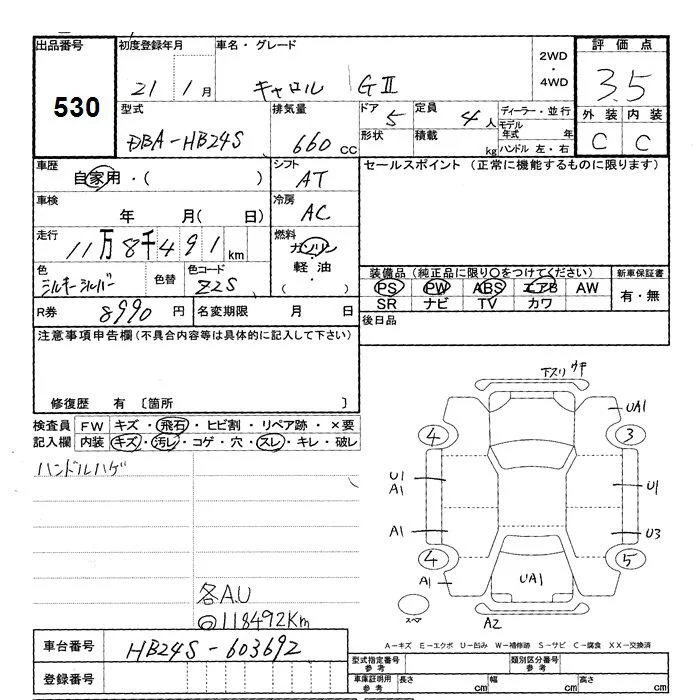 出品番号 初度登録年月 車名・グレード 2WD・4WD 評価点
530 21年1月 キャロル GⅡ 3.5
型式 排気量 ドア 5 定員 4人 ディーラー・並行 外装 内装
DBA-HB24S 660cc 形状 積載 kg モデル年式 年 ハンドル 左・右 C C
車歴 自家用・( ) シフト AT セールスポイント (正常に機能するものに限ります)
車検 年 月( 日) 冷房 AC
走行 11万8千491km 燃料 ガソリン・軽油・( )
色 シルキーシルバー 色替 色コード Z2S 装備品(純正品に限り○をつけてください) 新車保証書
PS PW ABS エアB AW 有・無
SR ナビ TV カワ
R券 8990円 名変期限 月 日 後日品
注意事項申告欄(不具合内容等は具体的に記入して下さい)
修復歴 有 〔箇所 〕
検査員記入欄 FW キズ・飛石・ヒビ割・リペア跡・×要
内装 キズ・汚レ・コゲ・穴・スレ・キレ・破レ
ハンドルハゲ
各A.U
118492Km
下スリ
UA1
4 3
U1 U1
A1
A1 U3
4 5
A1 UA1
スペア A2
A-キズ E-エクボ U-凹み W-補修跡 S-サビ C-腐食 XX-交換済
車台番号 HB24S-603692
登録番号
型式指定番号 参考 類別区分番号 参考
車庫証明用 参考 長さ cm 幅 cm 高さ cm